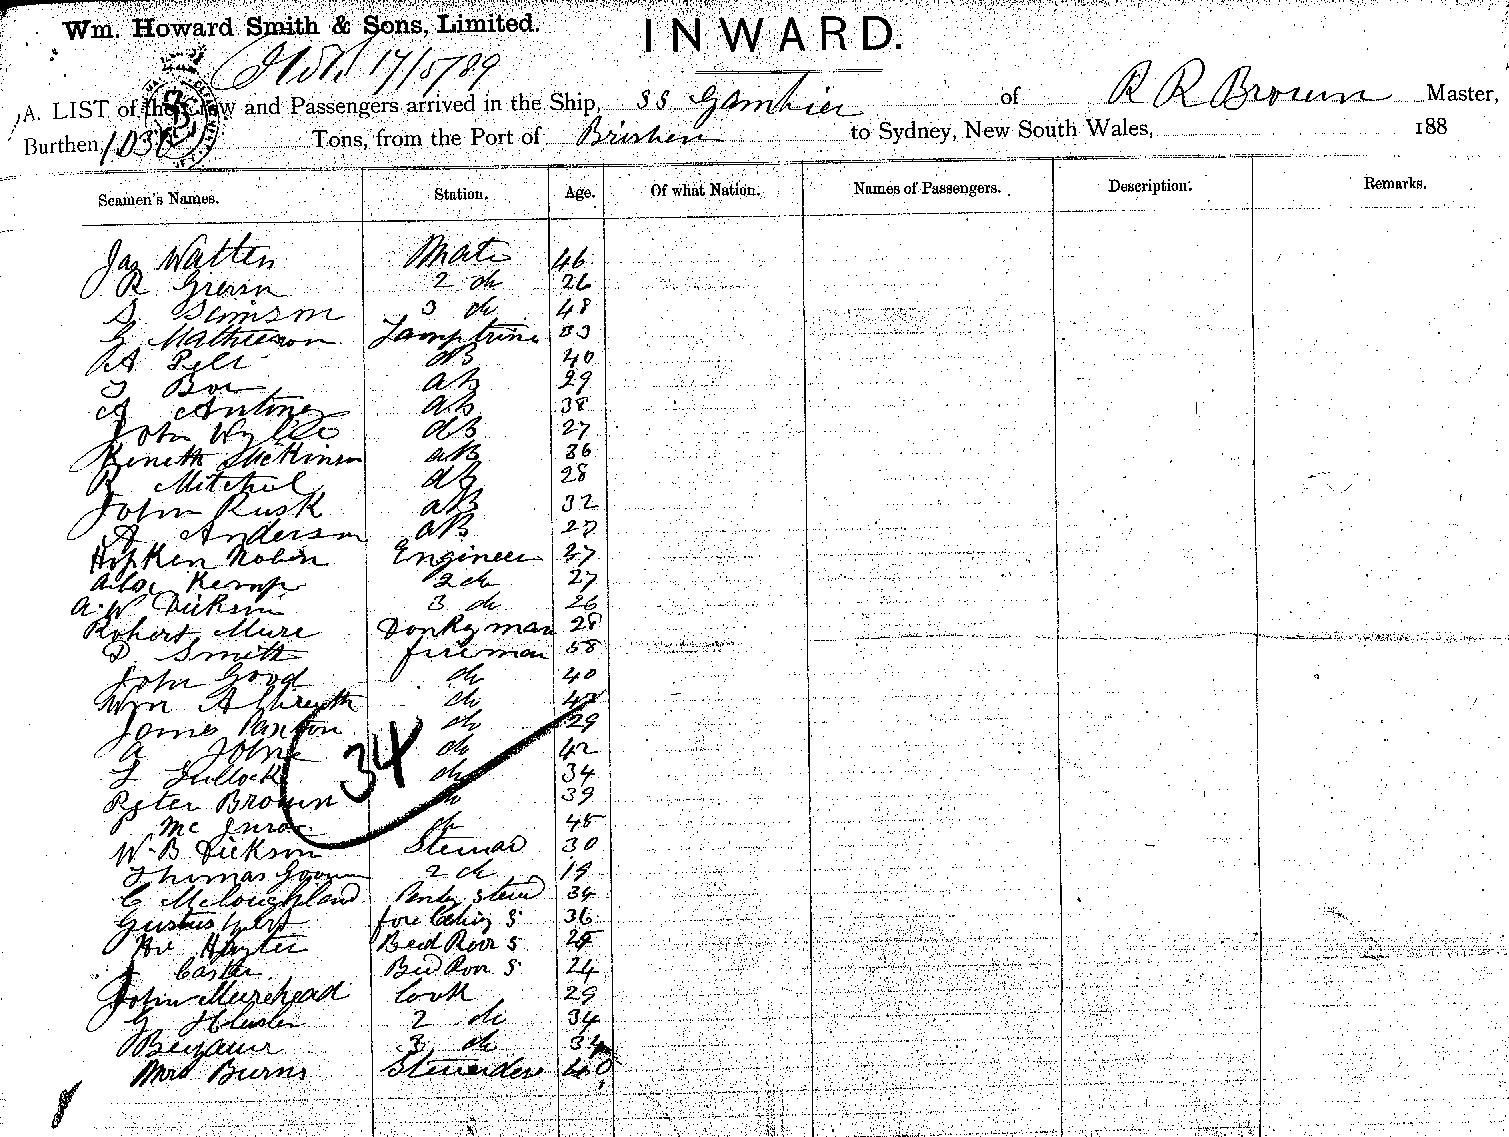 Wm. Howard Smith & Sons, Limited.
INWARD.
17/5/89
A. LIST of the Crew and Passengers arrived in the Ship, SS Gambier of R R Brown Master,
Burthen 1036 Tons, from the Port of Brisbane to Sydney, New South Wales, 188
Seamen's Names. Station. Age. Of what Nation. Names of Passengers. Description. Remarks.
Jas Watten Mate 46
R 2 do 26
S. 3 do 48
G Mathieson Lamptrim 33
AB 40
AB 29
A Antone AB 38
John Wyllie AB 27
Keneth McKinnon AB 36
R Mitchel AB 28
John Rusk AB 32
A Anderson AB 27
Hopken Robin Engineer 37
Kemp 2 do 27
A. W Dickson 3 do 26
Robert Mure Donkyman 28
D Smith fireman 58
John Good do 40
Wm do
James Paxton do 29
A Johns do 42
do 34
Peter Brown do 39
Mc do 45
W. B Dickson Steward 30
Thomas 2 do 19
C McLoughland Pantry Stewd 34
Gustus fore Cabin S 36
Hayter Bed Room S
J Carter Bed Room S 24
John Muirhead Cook 29
G 2 do 34
3 do 34
Mrs Burns Stewardess 40
34